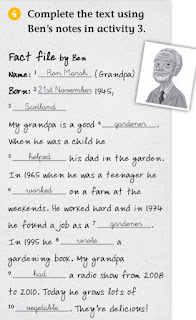 4 Complete the text using
Ben's notes in activity 3.
Fact file by Ben
Name: 1 Ron Marsh (Grandpa)
Born: 2 21st November 1945,
3 Scotland
My grandpa is a good 4 gardener.
When he was a child he
5 helped his dad in the garden.
In 1965 when he was a teenager he
6 worked on a farm at the
weekends. He worked hard and in 1974
he found a job as a 7 gardener.
In 1995 he 8 wrote a
gardening book. My grandpa
9 had a radio show from 2008
to 2010. Today he grows lots of
10 vegetable. They're delicious!